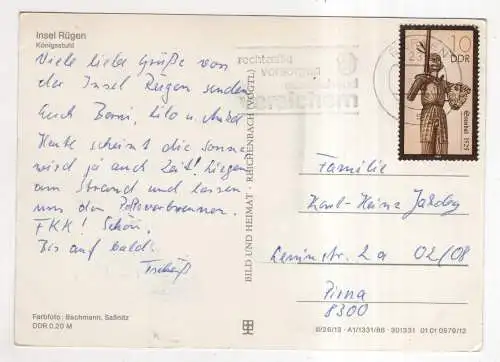 Insel Rügen
Königsstuhl
Viele liebe Grüße von
der Insel Rügen senden
Euch Berni, Lilo u.
Heute scheint die Sonne
wird ja auch Zeit! Liegen
am Strand und lassen
uns den Po verbrennen.
FKK! Schön.
Bis auf bald!
Tschüß
Farbfoto: Bachmann, Saßnitz
DDR 0,20 M
BILD UND HEIMAT · REICHENBACH (VOGTL)
rechtzeitig
vorsorgen
versichern
10
DDR
1525
Familie
Karl-Heinz
Leninstr. 2a 02/08
Pirna
8300
A1/1331/86 301331 01 01 0579/13